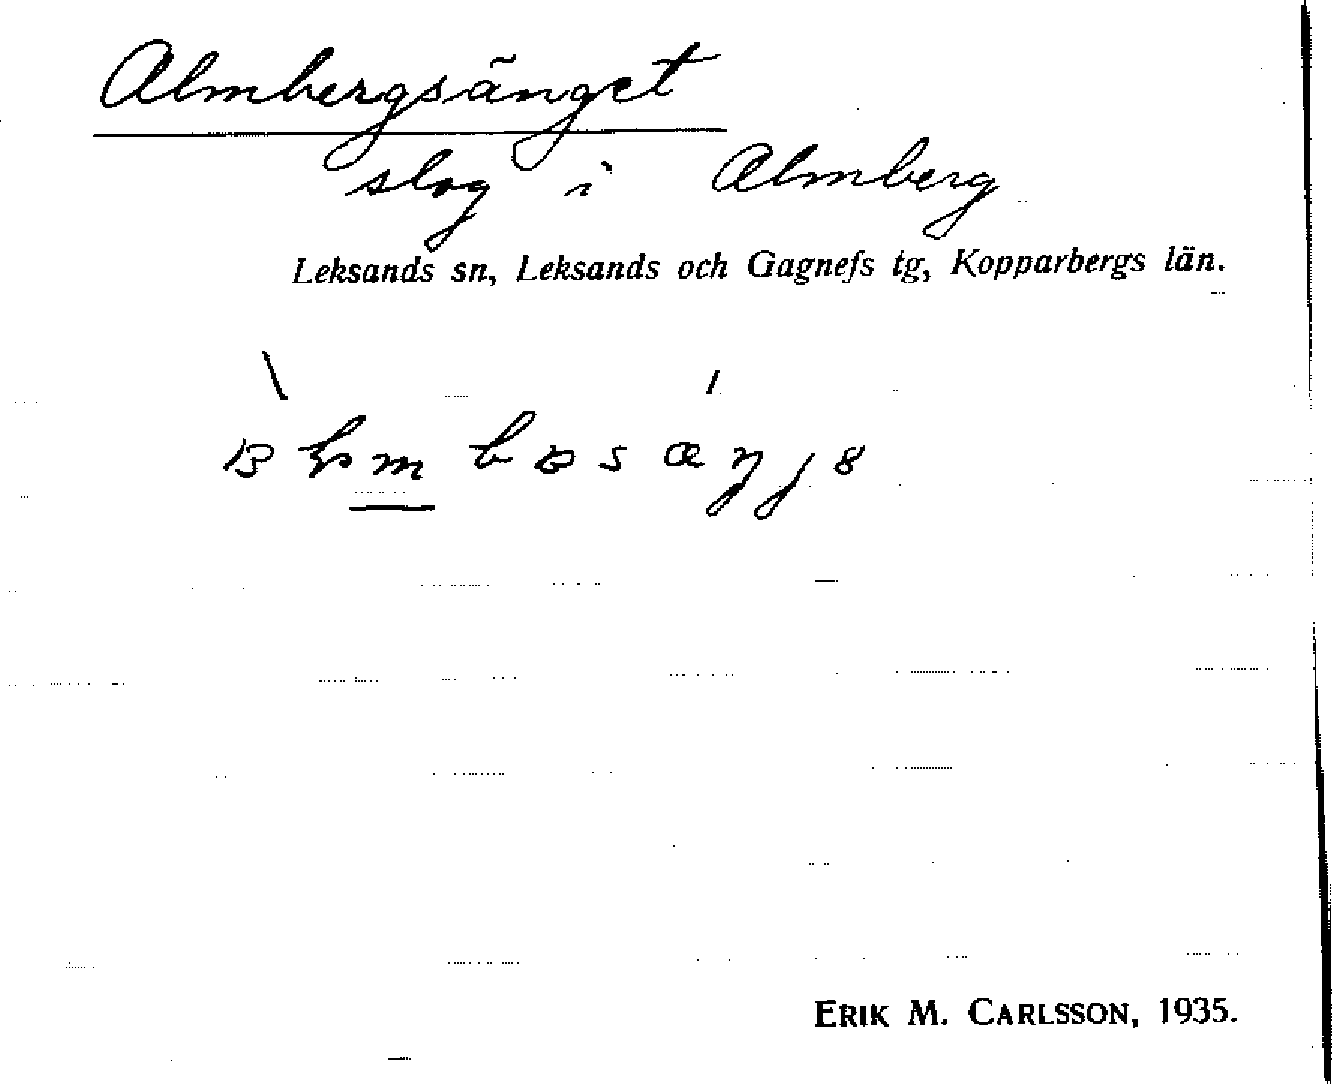 Almbergsänget
slog i Almberg
Leksands sn, Leksands och Gagnefs tg, Kopparbergs län.
ERIK M. CARLSSON, 1935.